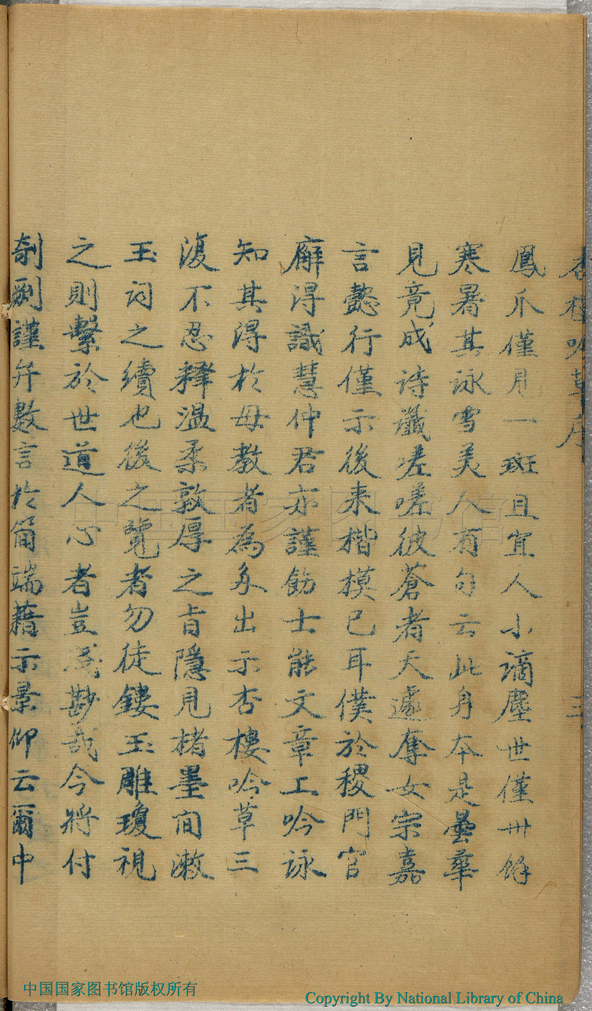 杏樓吟草序
三
鳳爪僅見一斑且宜人小謫塵世僅卅餘
寒暑其詠雪美人有句云此身本是曇華
見竟成诗讖嗟嗟彼蒼者天遽奪女宗嘉
言懿行僅示後来楷模已耳僕於稷門官
廨得識慧仲君亦謹飭士能文章工吟詠
知其得於母教者為多出示杏樓吟草三
復不忍釋温柔敦厚之旨隱見楮墨间潄
玉词之續也後之覽者勿徒鏤玉雕瓊視
之則繫於世道人心者豈淺尠哉今將付
剞劂謹弁數言於簡端藉示景仰云爾中
中国国家图书馆版权所有
Copyright By National Library of China